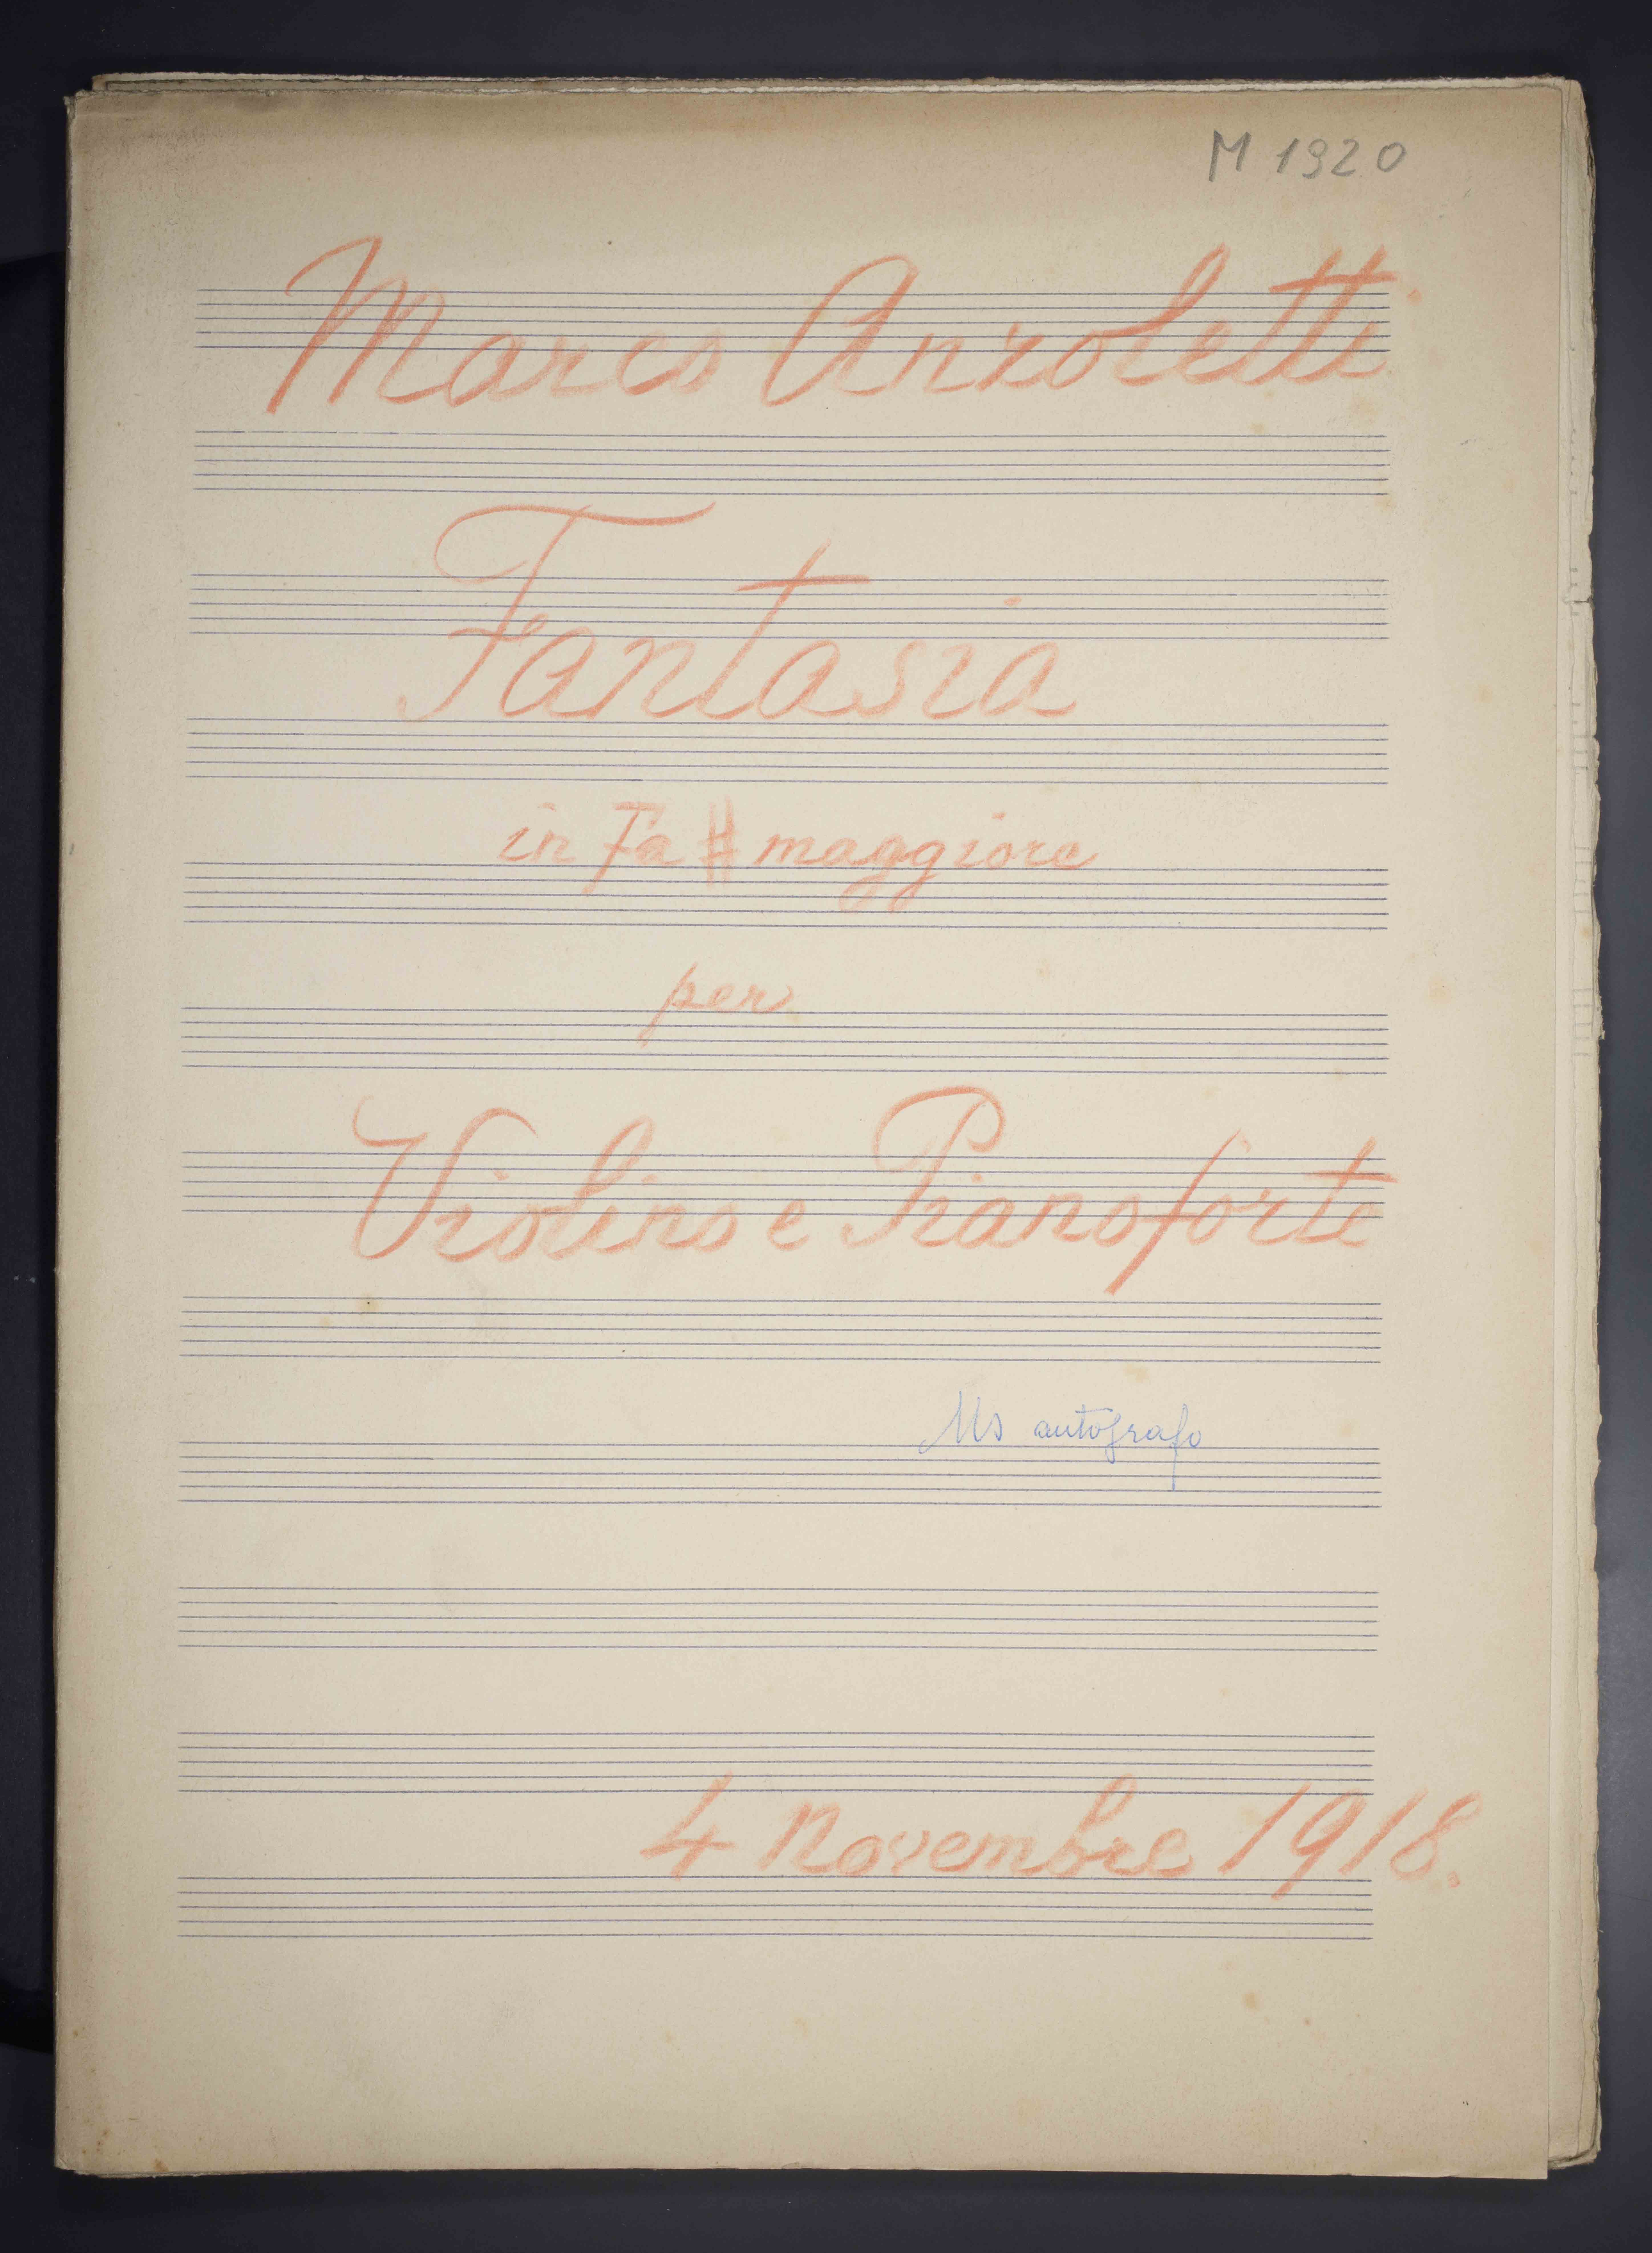 M 1920
Marco Anzoletti
Fantasia
in Fa # maggiore
per
Violino e Pianoforte
Ms autografo
4 Novembre 1918.